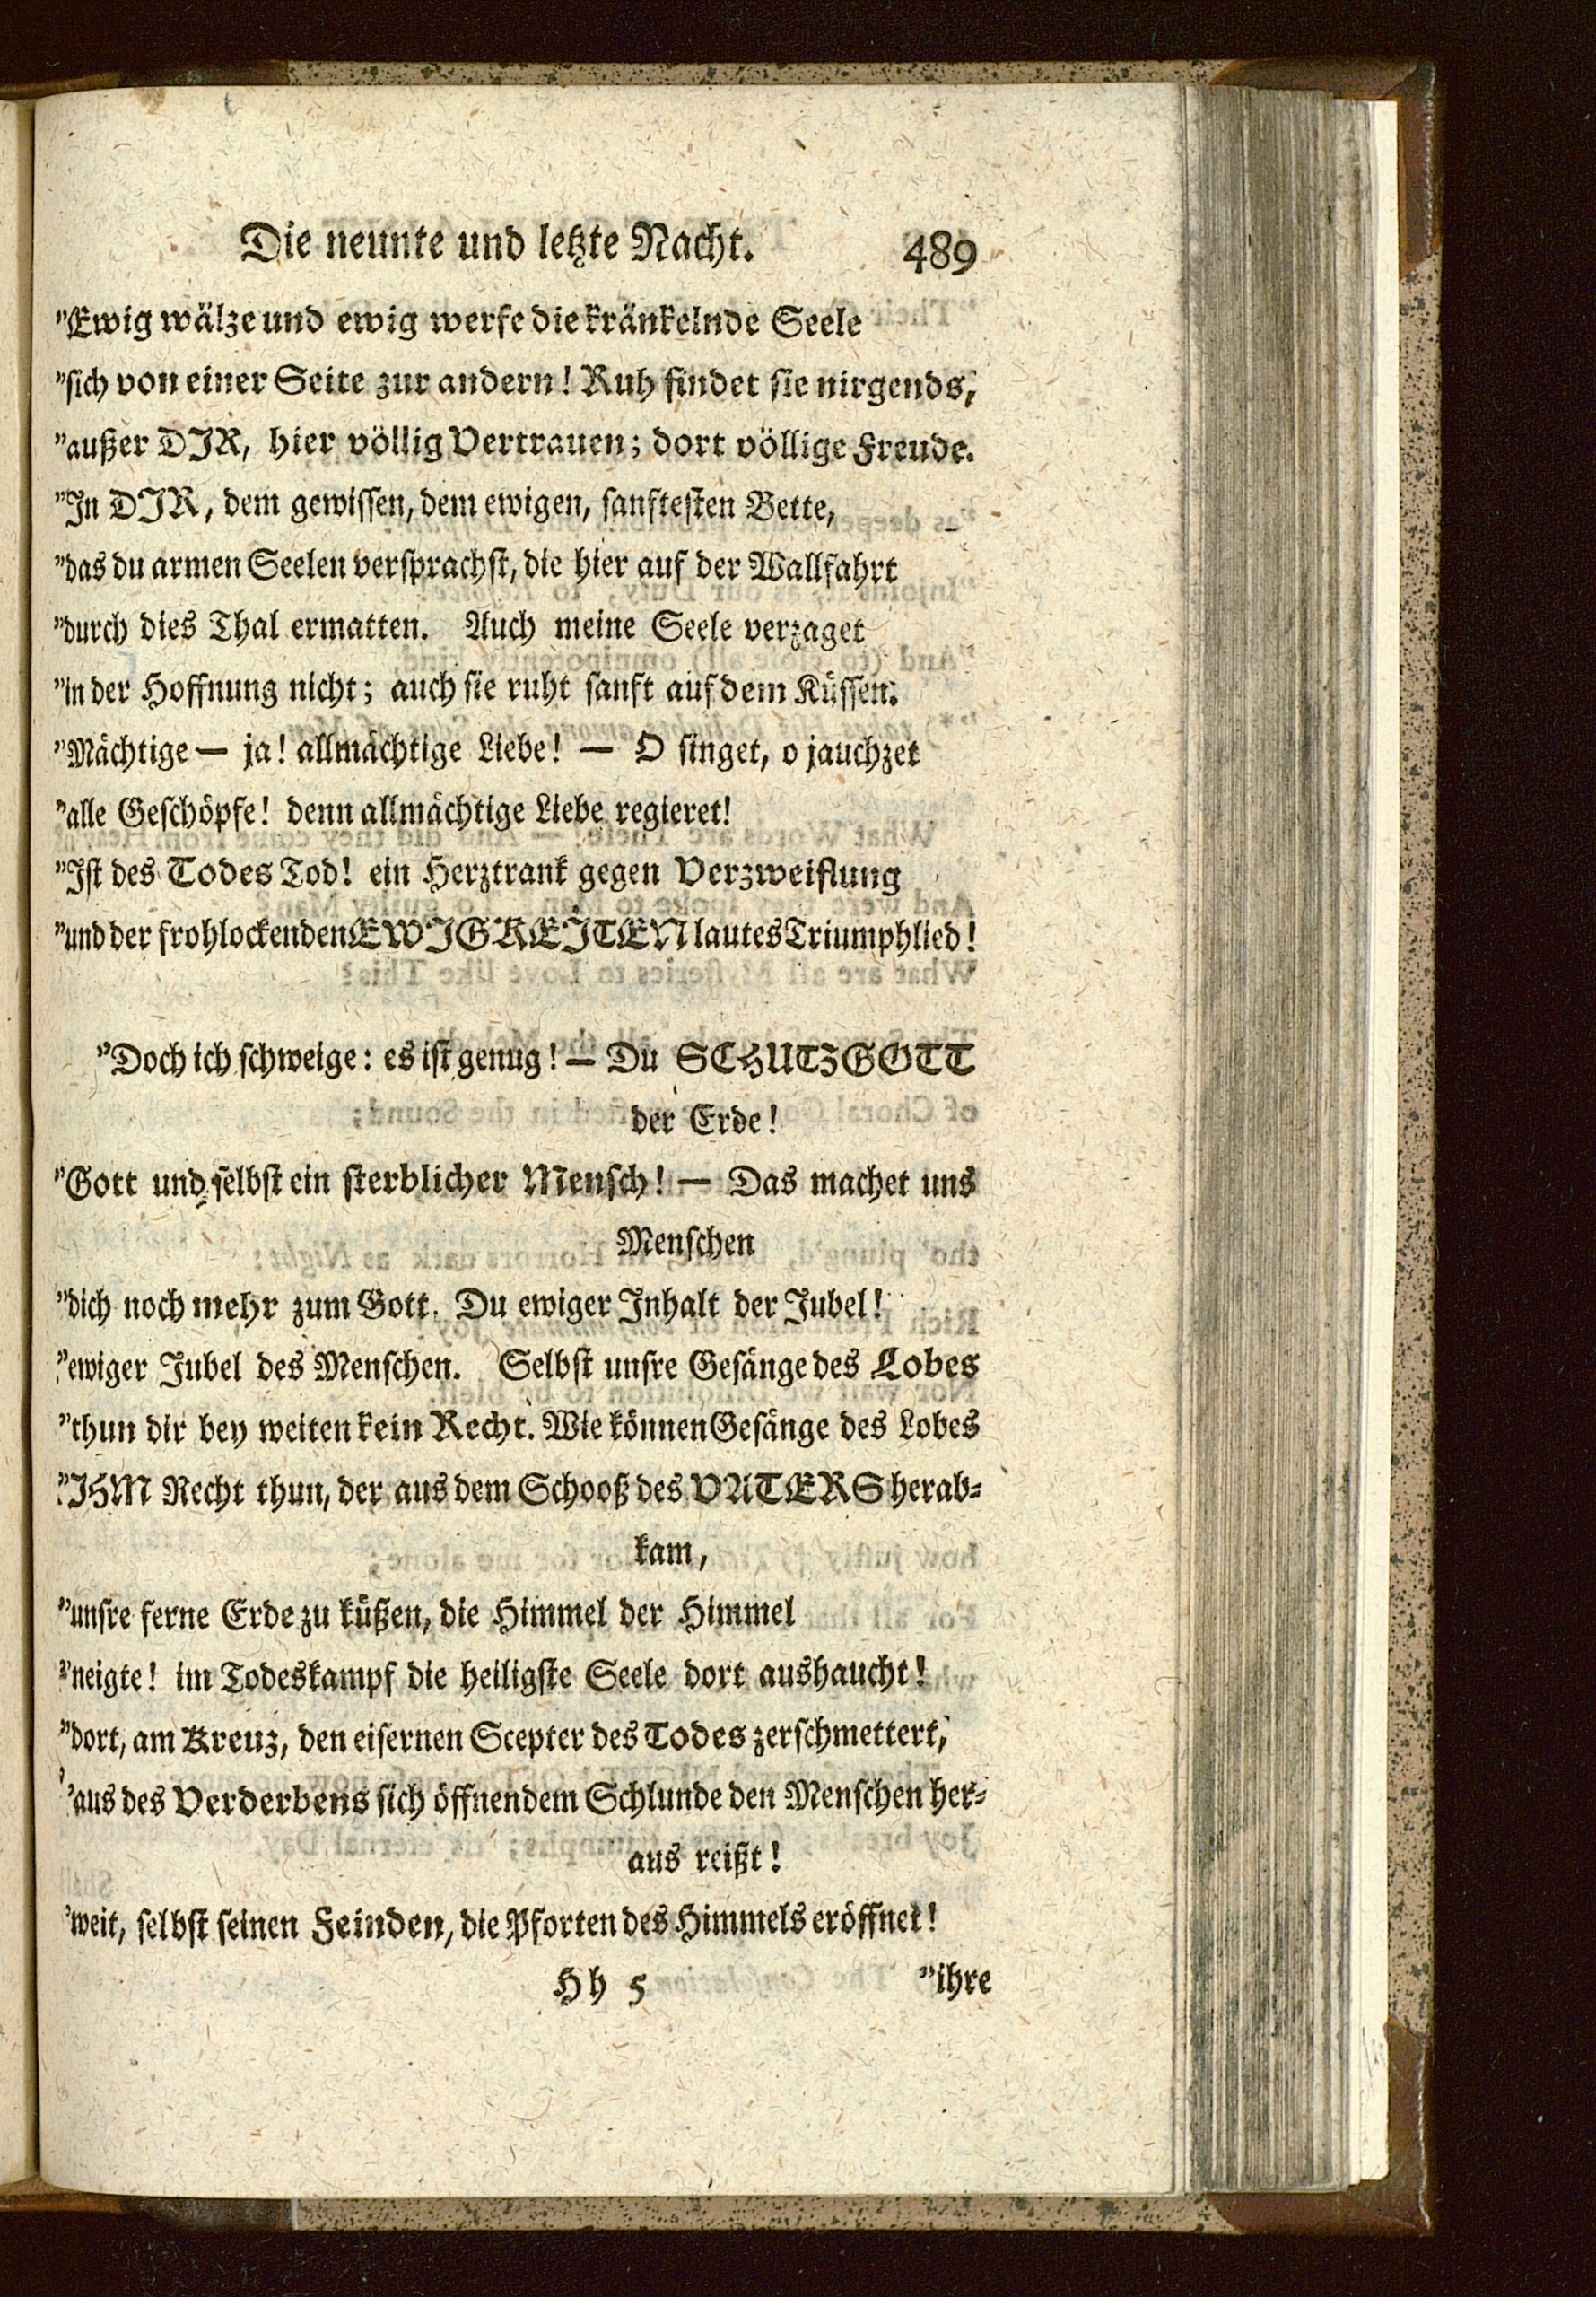 Die neunte und letzte Nacht. 489
"Ewig wälze und ewig werfe die kränkelnde Seele
"sich von einer Seite zur andern! Ruh findet sie nirgends,
"außer DJR, hier völlig Vertrauen; dort völlige Freude.
"Jn DJR, dem gewissen, dem ewigen, sanftesten Bette,
"das du armen Seelen versprachst, die hier auf der Wallfahrt
"durch dies Thal ermatten. Auch meine Seele verzaget
"in der Hoffnung nicht; auch sie ruht sanft auf dem Küssen.
"Mächtige — ja! allmächtige Liebe! — O singet, o jauchzet
"alle Geschöpfe! denn allmächtige Liebe regieret!
"Jst des Todes Tod! ein Herztrank gegen Verzweiflung
"und der frohlockenden EWJGKEJTEN lautes Triumphlied!
"Doch ich schweige: es ist genug! — Du SCHUTZGOTT
der Erde!
"Gott und selbst ein sterblicher Mensch! — Das machet uns
Menschen
"dich noch mehr zum Gott. Du ewiger Jnhalt der Jubel!
"ewiger Jubel des Menschen. Selbst unsre Gesänge des Lobes
"thun dir bey weiten kein Recht. Wie können Gesänge des Lobes
"JHM Recht thun, der aus dem Schooß des VATERS herab-
kam,
"unsre ferne Erde zu küßen, die Himmel der Himmel
"neigte! im Todeskampf die heiligste Seele dort aushaucht!
"dort, am Kreuz, den eisernen Scepter des Todes zerschmettert,
"aus des Verderbens sich öffnendem Schlunde den Menschen her-
aus reißt!
"weit, selbst seinen Feinden, die Pforten des Himmels eröffnet!
Hh 5 "ihre